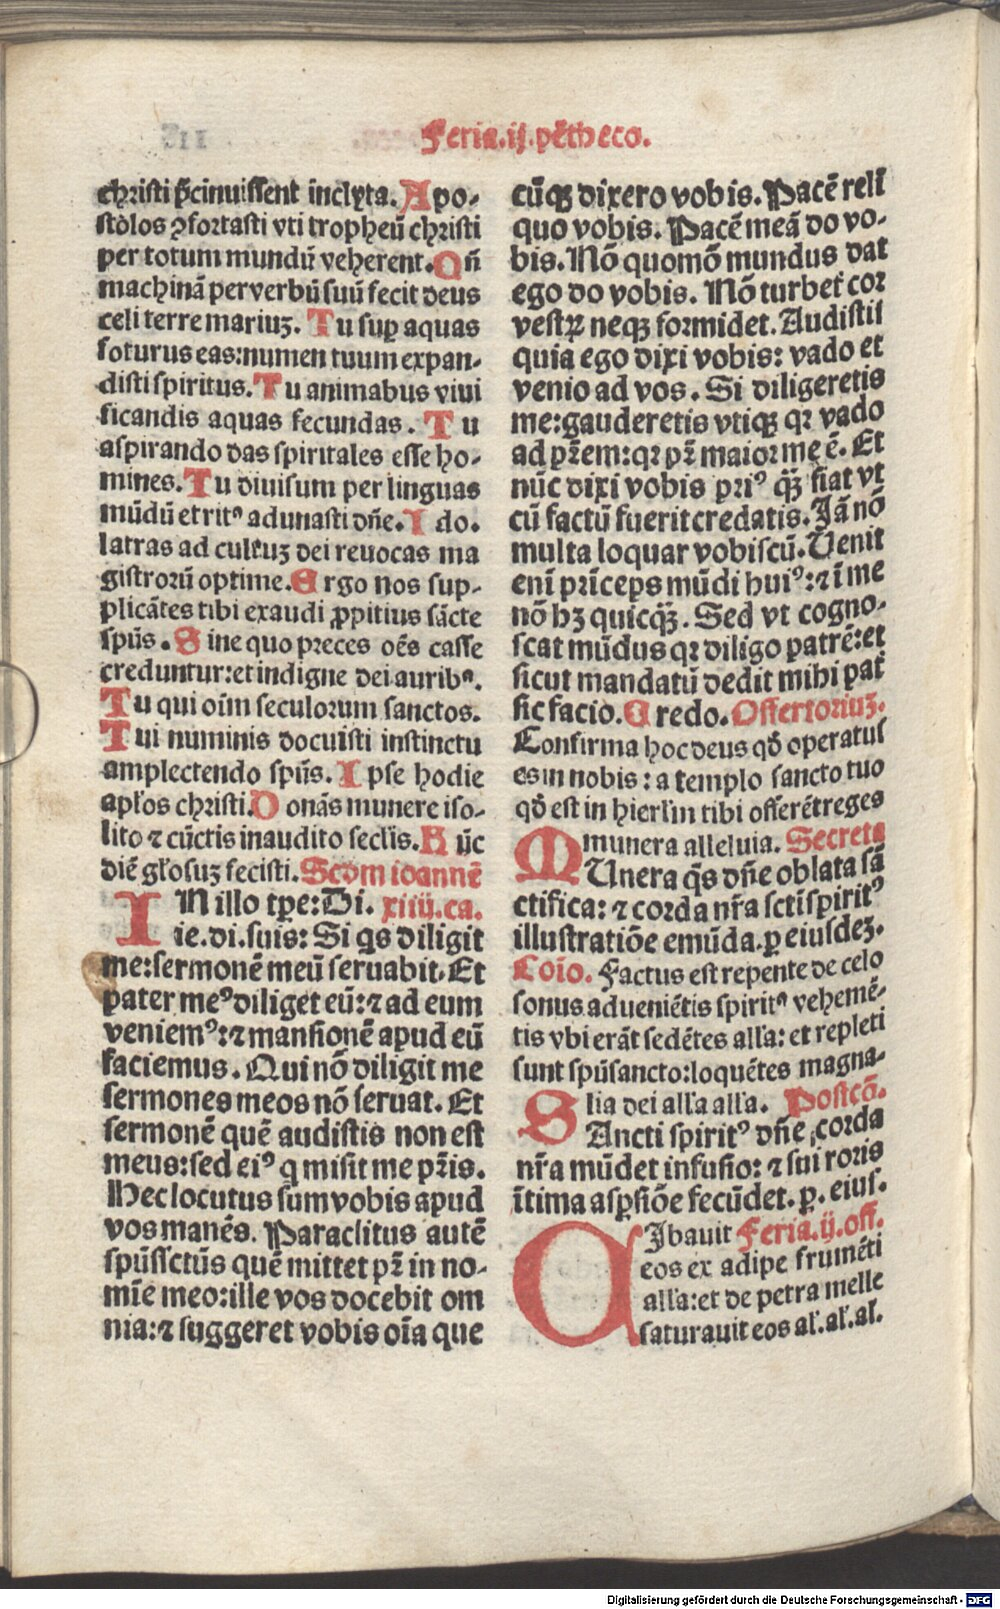 Feria.ij.pẽtheco.
christi p̃cinuissent inclyta. Apo-
stolos ꝯfortasti vti tropheũ christi
per totum mundũ veherent. Qñ
machinã per verbũ suũ fecit deus
celi terre mariuꝫ. Tu suꝑ aquas
foturus eas:numen tuum expan-
disti spiritus. Tu animabus viui
ficandis aquas fecundas. Tu
aspirando das spiritales esse ho-
mines. Tu diuisum per linguas
mũdũ et ritꝰ adunasti dñe. Ido.
latras ad cultuꝫ dei reuocas ma
gistrorũ optime. Ergo nos sup-
plicãtes tibi exaudi ꝓpitius sãcte
spũs. Sine quo preces oẽs casse
creduntur:et indigne dei auribꝰ.
Tu qui oĩm seculorum sanctos.
Tui numinis docuisti instinctu
amplectendo spũs. Ipse hodie
apľos christi. Donãs munere iso-
lito ⁊ cũctis inaudito seclis. Hũc
diẽ gľosuꝫ fecisti. Scdm ioannẽ
IN illo tꝑe: Di. xiiij.ca.
ie.di.suis: Si q̃s diligit
me:sermonẽ meũ seruabit. Et
pater meꝰ diliget eũ:⁊ ad eum
veniemꝰ:⁊ mansionẽ apud eũ
faciemus. Qui nõ diligit me
sermones meos nõ seruat. Et
sermonẽ quẽ audistis non est
meus:sed eiꝰ q misit me pr̃is.
Hec locutus sum vobis apud
vos manẽs. Paraclitus autẽ
spũssctũs quẽ mittet pr̃ in no-
mĩe meo:ille vos docebit om
nia:⁊ suggeret vobis oĩa que
cũqꝫ dixero vobis. Pacẽ reli
quo vobis. Pacẽ meã do vo-
bis. Nõ quomõ mundus dat
ego do vobis. Nõ turbet̃ cor
vestꝝ neqꝫ formidet. Audistis
quia ego dixi vobis: vado et
venio ad vos. Si diligeretis
me:gauderetis vtiqꝫ qꝛ vado
ad pr̃em:qꝛ pr̃ maior me ẽ. Et
nũc dixi vobis priꝰ qꝫ̃ fiat vt
cũ factũ fuerit credatis. Jã nõ
multa loquar vobiscũ. Venit
eni prĩceps mũdi huiꝰ:⁊ ĩ me
nõ hꝫ quicqꝫ̃. Sed vt cogno-
scat mũdus qꝛ diligo patrẽ:et
sicut mandatũ dedit mihi pat̃
sic facio. Credo. Offertoriuꝫ.
Confirma hoc deus qđ operatus
es in nobis: a templo sancto tuo
qđ est in hierľm tibi offerẽt reges
munera alleluia. Secreta
MUnera q̃s dñe oblata sã
ctifica: ⁊ corda nr̃a sctĩ spiritꝰ
illustratiõe emũda. ꝑ eiusdeꝫ.
Coĩo. Factus est repente de celo
sonus aduenieẽtis spiritꝰ vehemẽ-
tis vbi erãt sedẽtes alľa: et repleti
sunt spũsancto:loquẽtes magna-
lia dei alľa alľa. Postcõ.
SAncti spiritꝰ dñe corda
nr̃a mũdet infusio: ⁊ sui roris
ĩtima aspsiõe fecũdet. ꝑ. eius.
CIbauit Feria.ij.off.
eos ex adipe frumẽti
alľa:et de petra melle
saturauit eos aľ.aľ.aľ.
Digitalisierung gefördert durch die Deutsche Forschungsgemeinschaft - DFG